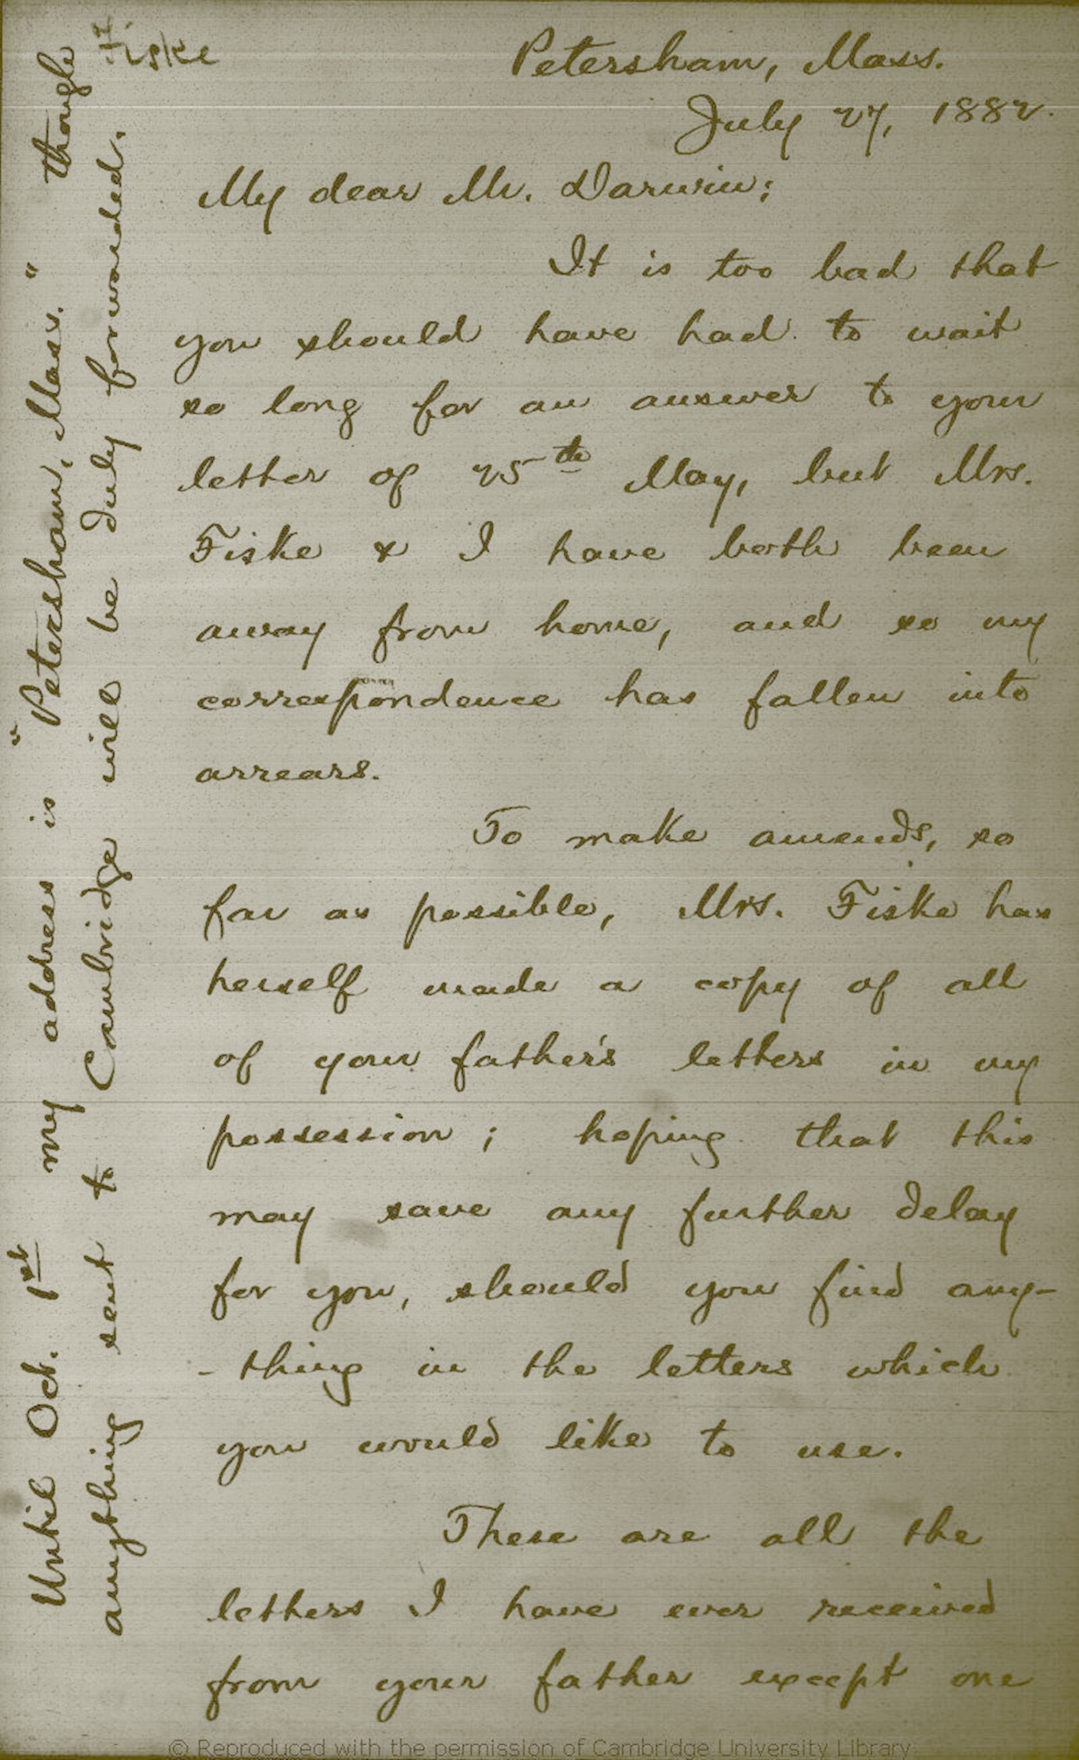 Fiske
Petersham, Mass.
July 27, 1882.
My dear Mr. Darwin;
It is too bad that
you should have had to wait
so long for an answer to your
letter of 25th May, but Mrs.
Fiske & I have both been
away from home, and so my
correspondence has fallen into
arrears.
To make amends, so
far as possible, Mrs. Fiske has
herself made a copy of all
of your father's letters in my
possession; hoping that this
may save any further delay
for you, should you find any-
-thing in the letters which
you would like to use.
These are all the
letters I have ever received
from your father except one
Until Oct. 1st my address is "Petersham, Mass." though
anything sent to Cambridge will be duly forwarded.
© Reproduced with the permission of Cambridge University Library